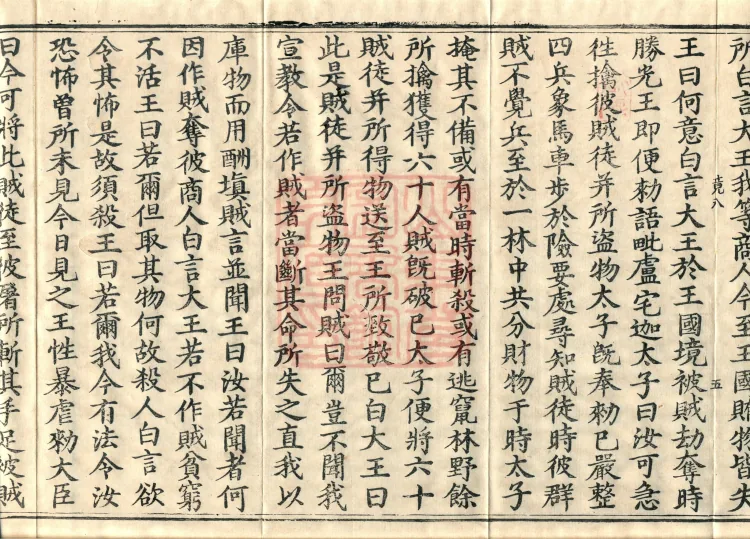 所白言大王我等商人今至王國財物皆失
竟八 五
王曰何意白言大王於王國境被賊劫奪時
勝光王即便勑語毗盧宅迦太子曰汝可急
往擒彼賊徒并所盜物太子旣奉勑已嚴整
四兵象馬車步於險要處尋知賊徒時彼群
賊不覺兵至於一林中共分財物于時太子
掩其不備或有當時斬殺或有逃竄林野餘
所擒獲得六十人賊旣破已太子便將六十
賊徒并所得物送至王所致敬已白大王曰
此是賊徒并所盜物王問賊曰爾豈不聞我
宣教令若作賊者當斷其命所失之直我以
庫物而用酬塡賊言並聞王曰汝若聞者何
因作賊奪彼商人白言大王若不作賊貧窮
不活王曰若爾但取其物何故殺人白言欲
令其怖是故須殺王曰若爾我今有法令汝
恐怖曾所未見今日見之王性暴虐勑大臣
曰今可將此賊徒至彼屠所斬其手足彼賊